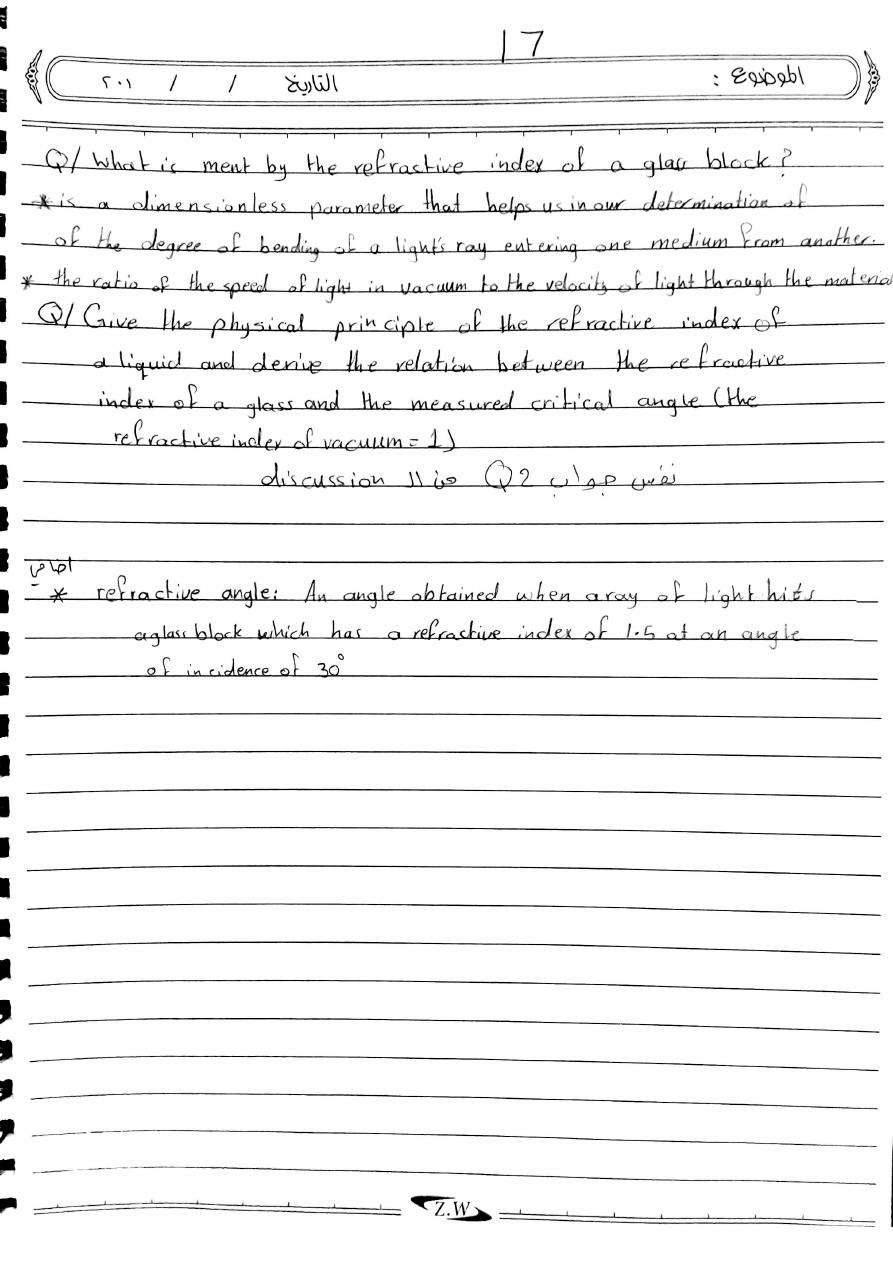 17
الموضوع : التاريخ / / ٢٠١
Q/ What is ment by the refractive index of a glass block?
* is a dimensionless parameter that helps us in our determination of
of the degree of bending of a light's ray entering one medium from another.
* the ratio of the speed of light in vacuum to the velocity of light through the material
Q/ Give the physical principle of the refractive index of
a liquid and derive the relation between the refractive
index of a glass and the measured critical angle (the
refractive index of vacuum = 1)
نفس جواب Q2 من الـ discussion
* refractive angle: An angle obtained when a ray of light hits
a glass block which has a refractive index of 1.5 at an angle
of incidence of 30°
Z.W